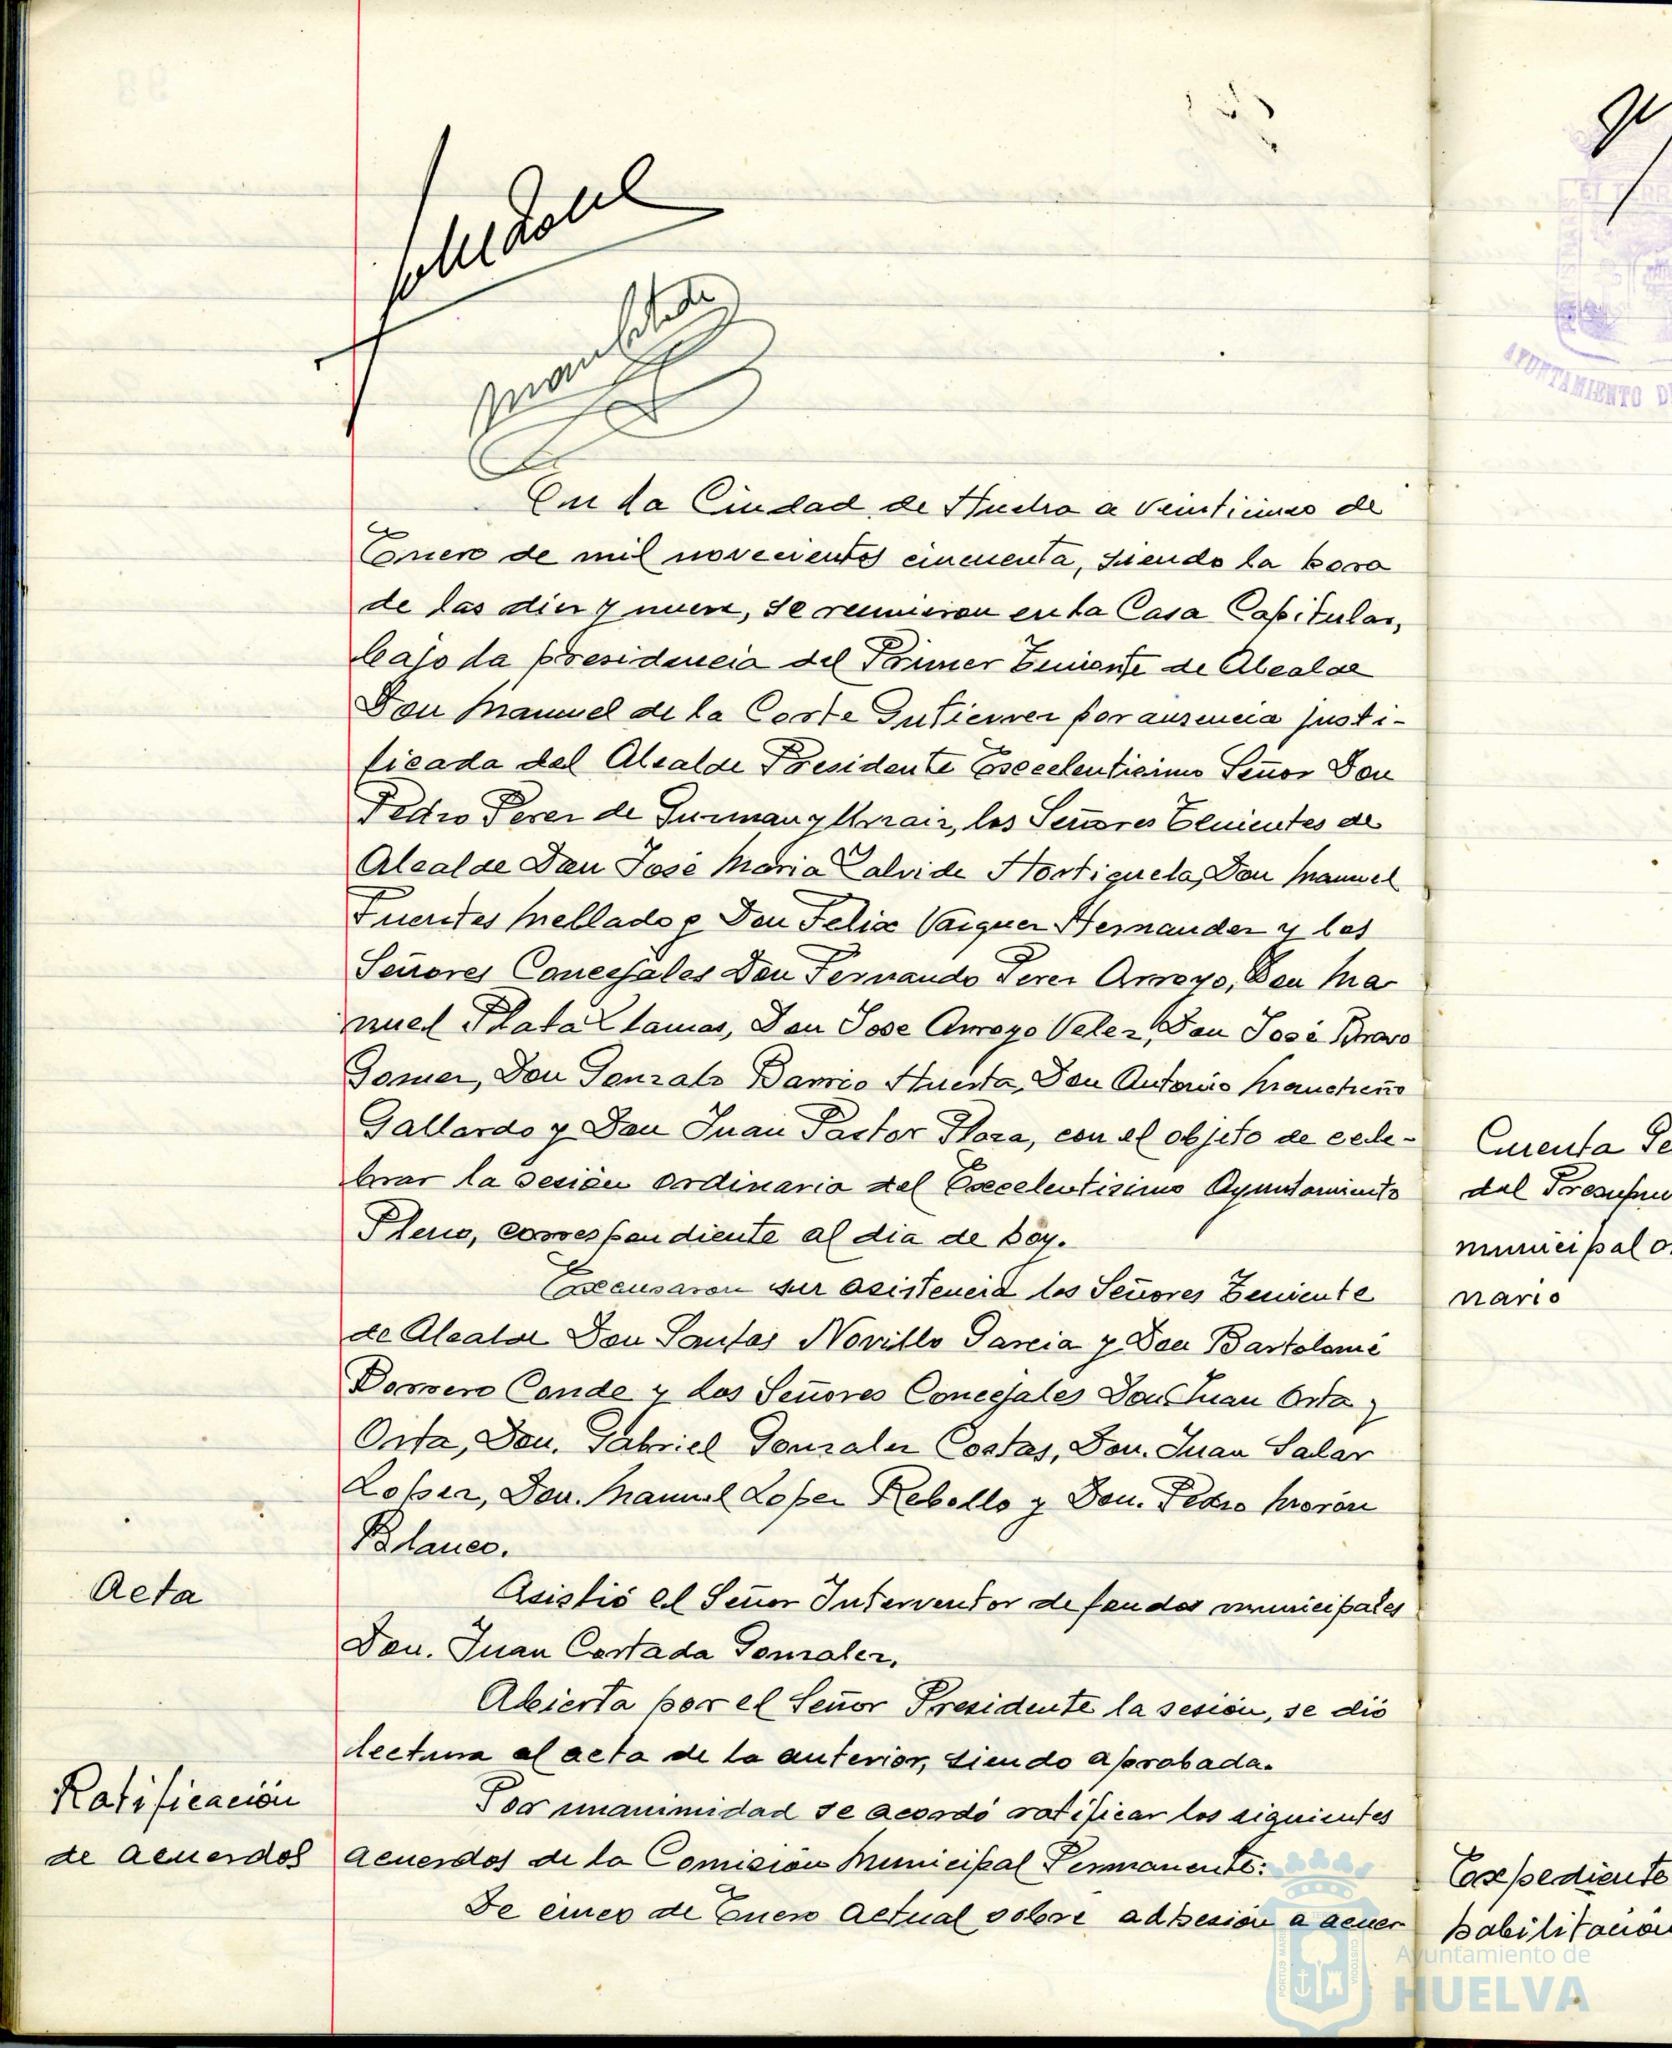 En la Ciudad de Huelva a veinticinco de
Enero de mil novecientos cincuenta, siendo la hora
de las diez y nueve, se reunieron en la Casa Capitular,
bajo la presidencia del Primer Teniente de Alcalde
Don Manuel de la Corte Gutierrez por ausencia justi-
ficada del Alcalde Presidente Excelentisimo Señor Don
Pedro Perez de Guzman y Urzaiz, los Señores Tenientes de
Alcalde Don José Maria Calvi de Hortiguela, Don Manuel
Fuentes Mellado y Don Felix Vazquez Hernandez y los
Señores Concejales Don Fernando Perez Arroyo, Don Ma
nuel Plata Llamas, Don Jose Arroyo Velez, Don José Bravo
Gomez, Don Gonzalo Barrio Huerta, Don Antonio Mancheño
Gallardo y Don Juan Pastor, con el objeto de cele-
brar la sesión ordinaria del Excelentisimo Ayuntamiento
Pleno, correspondiente al dia de hoy.
Excusaron su asistencia los Señores Teniente
de Alcalde Don Santos Novillo Garcia y Don Bartolomé
Borrero Conde y los Señores Concejales Don Juan Orta y
Orta, Don Gabriel Gonzalez Costas, Don Juan Salar
Lopez, Don Manuel Lopez Rebollo y Don Pedro Morón
Blanco.
Acta
Asistió el Señor Interventor de fondos municipales
Don Juan Cortada Gonzalez.
Abierta por el Señor Presidente la sesión, se dió
lectura al acta de la anterior, siendo aprobada.
Ratificación
de acuerdos
Por unanimidad se acordó ratificar los siguientes
acuerdos de la Comisión Municipal Permanente:
De cinco de Enero actual sobre adhesión a acuer
Cuenta
del Presupu
municipal o
nario
Expediente
habilitación
AYUNTAMIENTO D
Ayuntamiento de
HUELVA